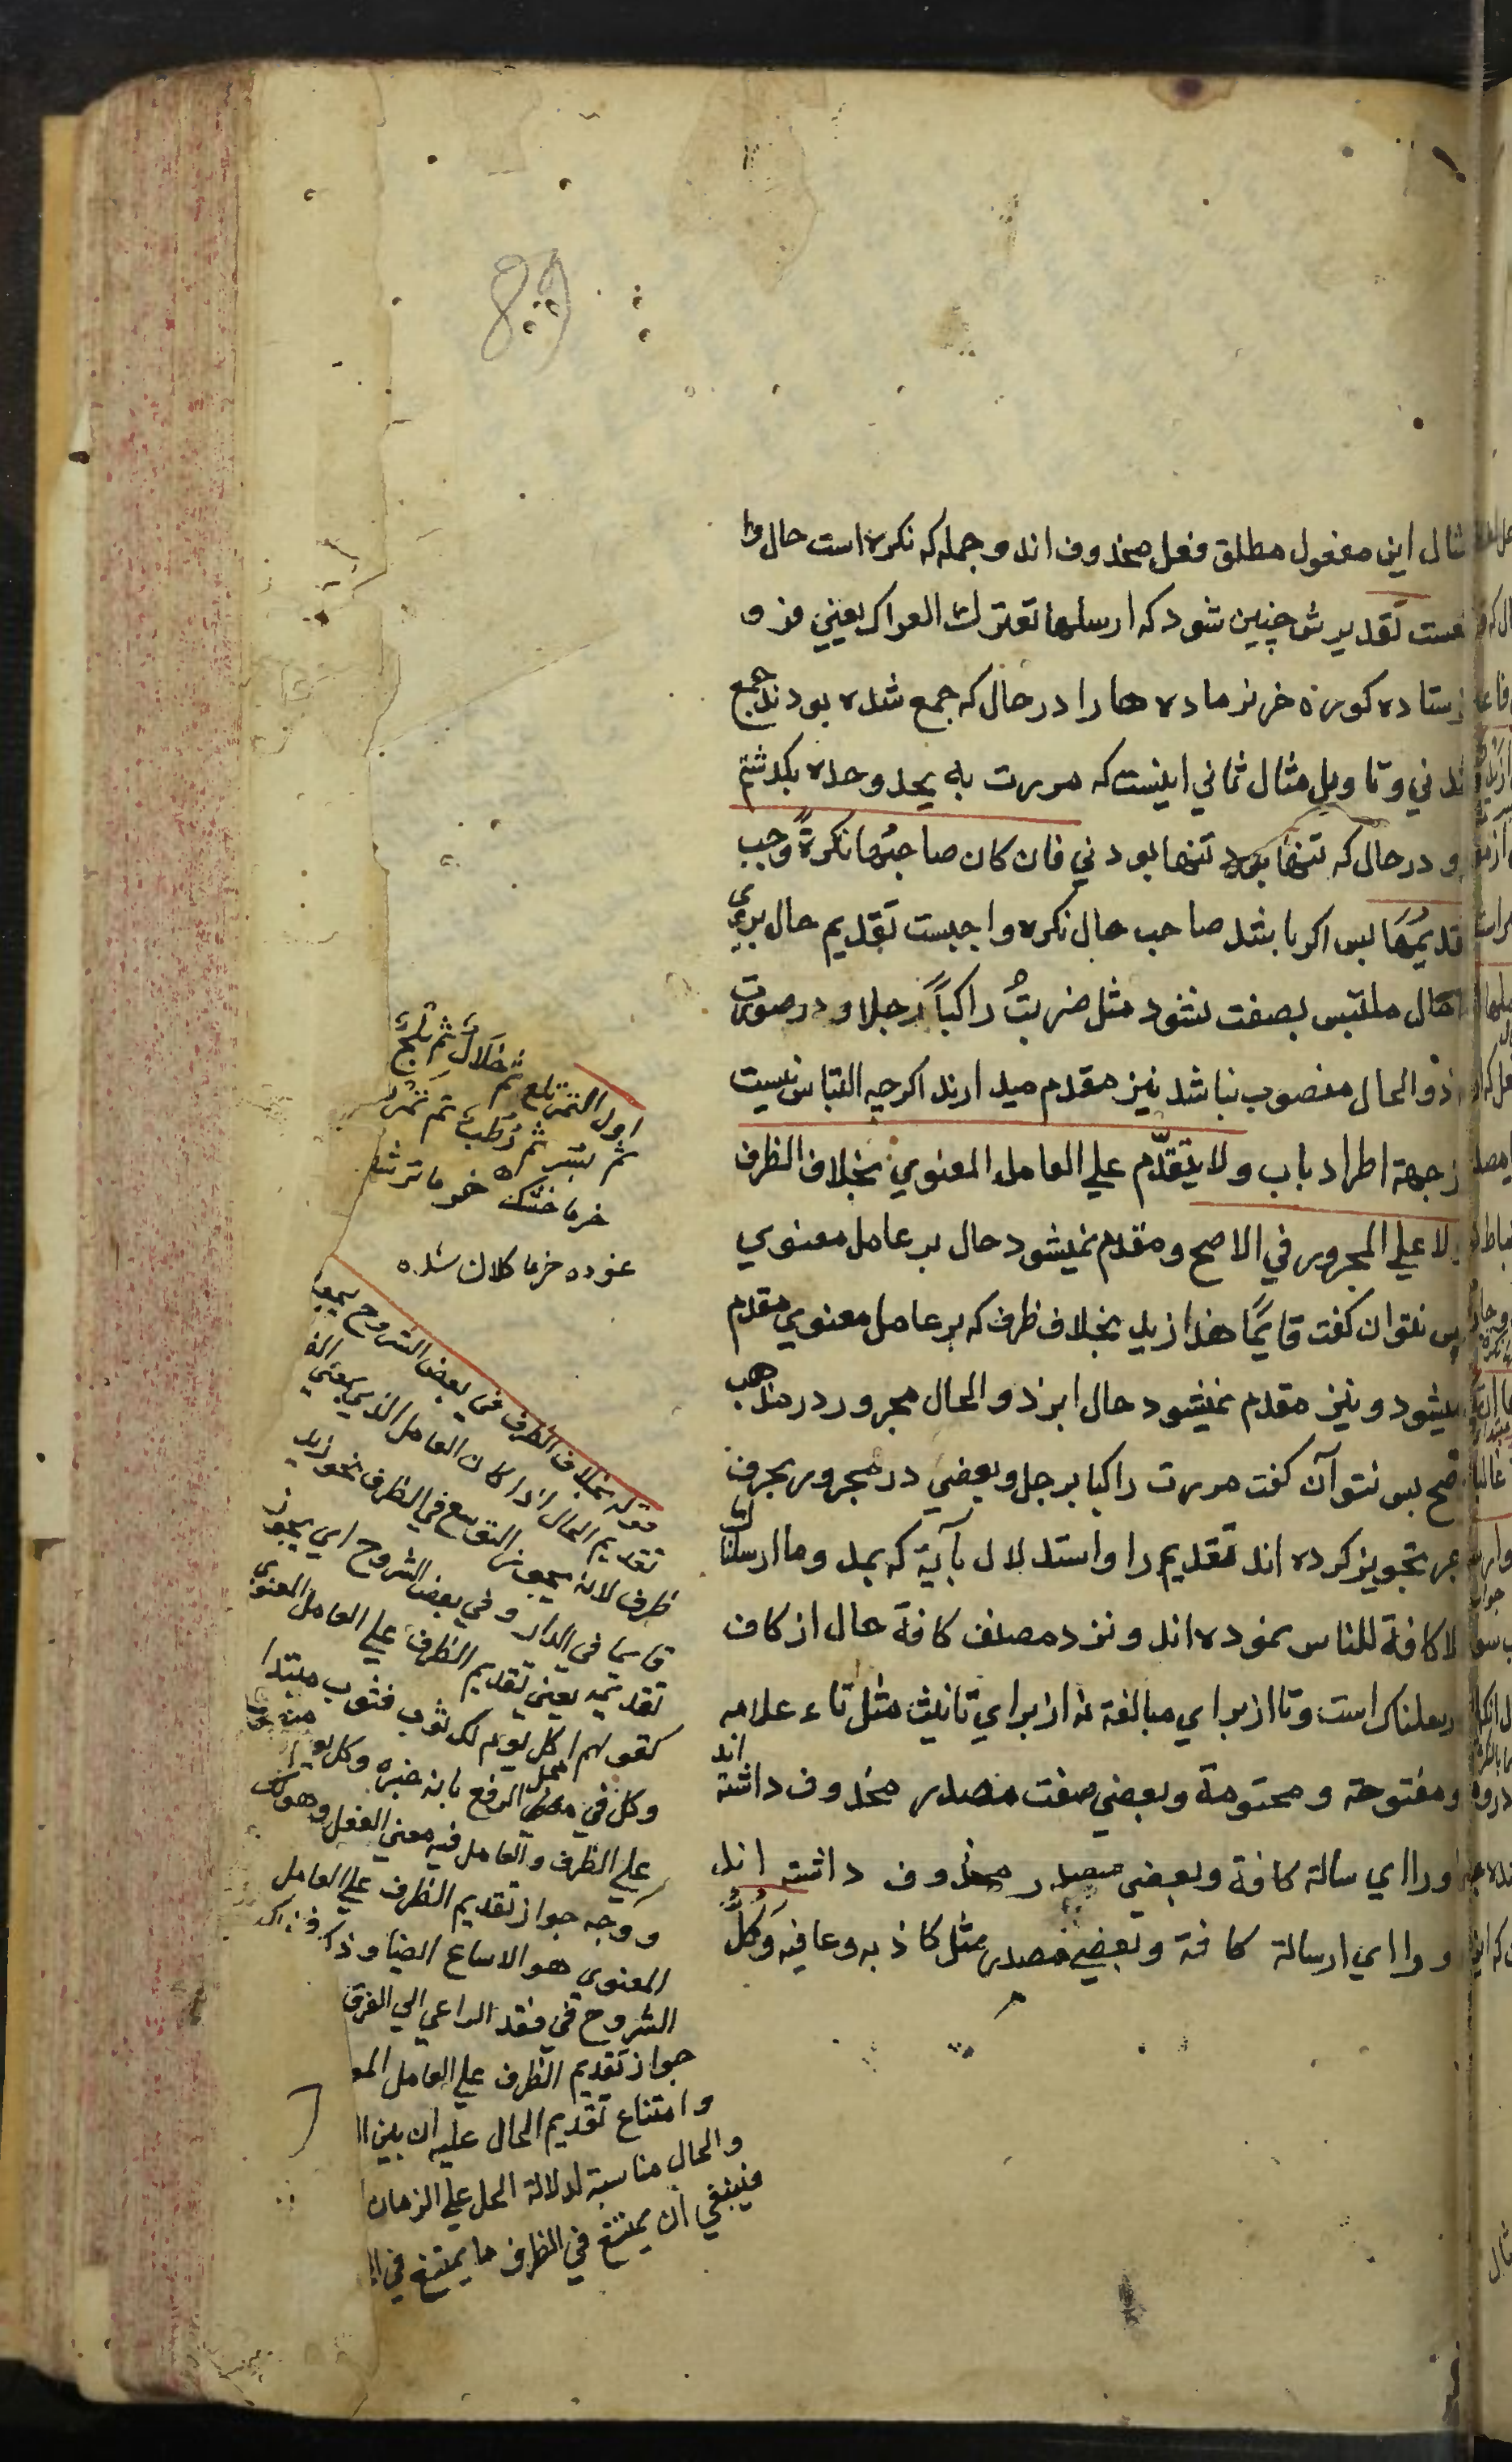 مثال این مفعول مطلق فعل محذوف اند و جمله که نکره است حال وا
تقدیرش چنین شود که ارسلها تعترك العراك یعني فرو
فرستاده کوره خر نر ماده ها را در حال که جمع شده بودند جمع
شدني و تاویل مثال ثاني اینست که مررت به یحد وحده بکدشتم
و در حال که تنها بود تنها بودني فان كان صاحبُها نكرةً وجب
تقديمُها بس اکر باشد صاحب حال نکره واجبست تقدیم حال بروی
حال ملتبس بصفت نشود مثل ضربتُ راكباً رجلا و در صورت
ذوالحال منصوب نباشد نیز مقدم میدارند اکرچه التباس نیست
ازجهة اطراد باب ولا يتقدّم علي العامل المعنوي بخلاف الظرف
ولا علي المجرور في الاصح و مقدم نمیشود حال بر عامل معنوي
بس نتوان کفت قایمًا هذا زید بخلاف ظرف که بر عامل معنوي مقدم
میشود و نیز مقدم نمیشود حال ابر ذوالحال مجرور در مذهب
اصح بس نتوان کفت مررت راکبا برجل و بعضي در مجرور بحرف
جر تجویز کرده اند تقدیم را و استدلال بآیة کریمه وما ارسلناك
الا كافة للناس نموده اند و نزد مصنف كافة حال از کاف
ارسلناك است و تا از براي مبالغة نه از براي تانیث مثل تاء علامه
و مفتوحة و محتومة و بعضي صفت مصدر محذوف داشته اند
اورا اي رسالة كافة و بعضي مصدر محذوف داشته اند
اورا اي ارسالة كافة و بعضي مصدر مثل كاذبه و عافيه وَكُلُّ
اول التمر طلع ثم خَلال ثم بَلَح
ثم بسر ثم رُطب ثم تمر
خرما خشك خرما تر شد
غوره خرما کلان شده
قوله بخلاف الظرف في بعض الشروح
تقديم الحال اذا كان العامل الذي يعني
ظرف لانه يجوز التوسع في الظرف نحو زيد
قايما في الدار وفي بعض الشروح اي يجوز
تقديمه يعني تقديم الظرف علي العامل المعنوي
كقولهم اكل يوم لك ثوب فثوب مبتدا
وكل في محل الرفع بانه خبره وكل يوم
علي الظرف والعامل فيه معني الفعل وهو لك
ووجه جواز تقديم الظرف علي العامل
المعنوي هو الاتساع ايضا وذكر في اكثر
الشروح في فقد الداعي الي الفرق
جواز تقديم الظرف علي العامل المعـ
وامتناع تقديم الحال عليه ان بين ا
والحال مناسبة لدلالة الحل علي الزمان
فينبغي ان يمتنع في الظرف ما يمتنع في ا